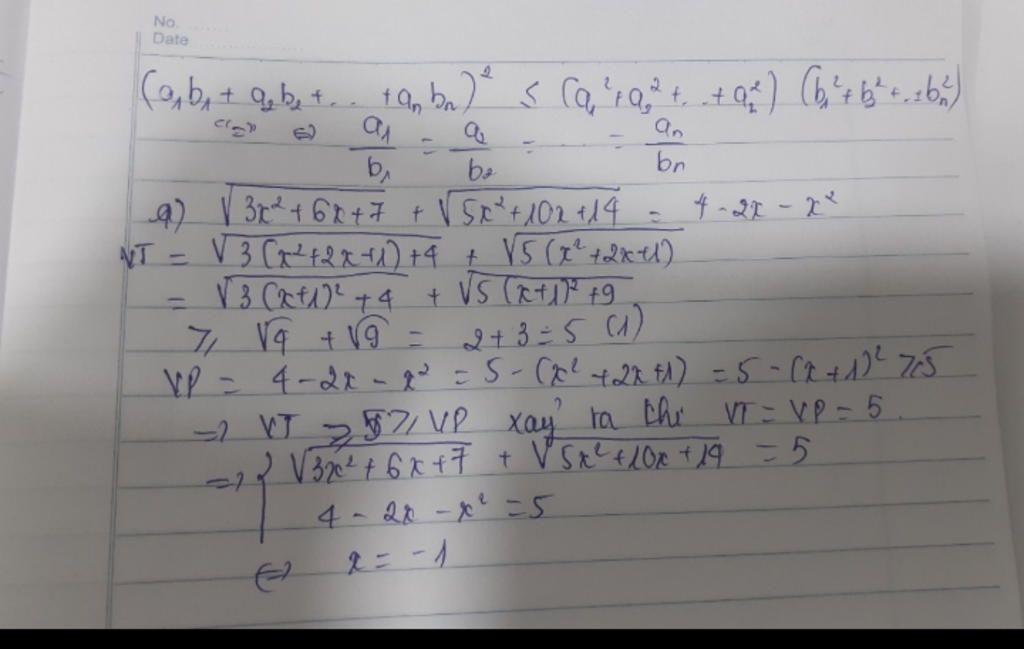 No.
Date
(a₁b₁ + a₂b₂ + ... + aₙbₙ)² ≤ (a₁² + a₂² + ... + a₂²) (b₁² + b₂² + ... + bₙ²)
"=" ⇔ a₁/b₁ = a₂/b₂ = ... = aₙ/bₙ
a) √(3x² + 6x + 7) + √(5x² + 10x + 14) = 4 - 2x - x²
VT = √(3(x² + 2x + 1) + 4) + √(5(x² + 2x + 1))
= √(3(x+1)² + 4) + √(5(x+1)² + 9)
≥ √4 + √9 = 2 + 3 = 5 (1)
VP = 4 - 2x - x² = 5 - (x² + 2x + 1) = 5 - (x + 1)² ≥ 5
⇒ VT ≥ 5 ≥ VP xảy ra khi VT = VP = 5.
⇒ { √(3x² + 6x + 7) + √(5x² + 10x + 14) = 5
4 - 2x - x² = 5
⇔ x = -1